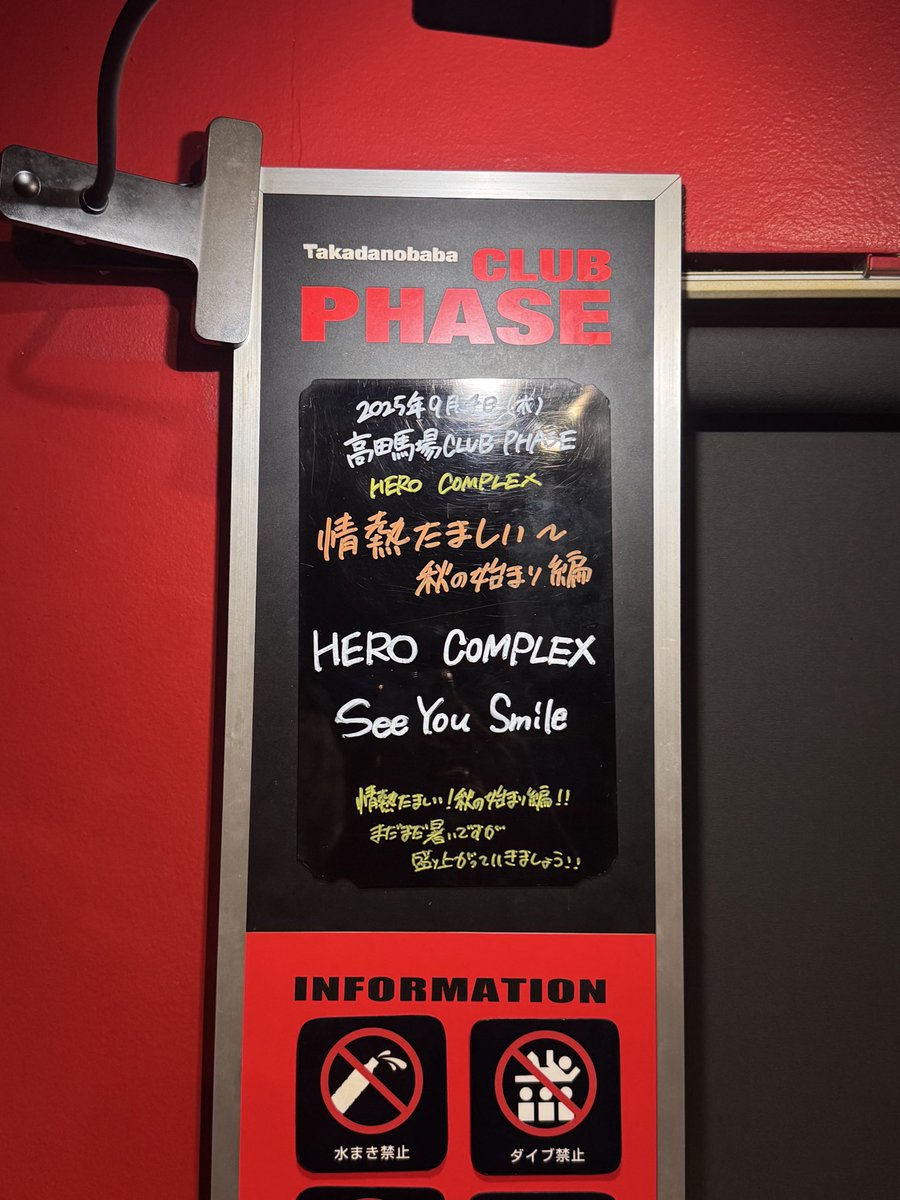 Takadanobaba CLUB
PHASE
2025年9月 日
高田馬場CLUB PHASE
HERO COMPLEX
情熱たましい〜
秋の始まり編
HERO COMPLEX
See You Smile
情熱たましい!秋の始まり編!!
まだまだ暑いですが
盛り上がっていきましょう!!
INFORMATION
水まき禁止
ダイブ禁止